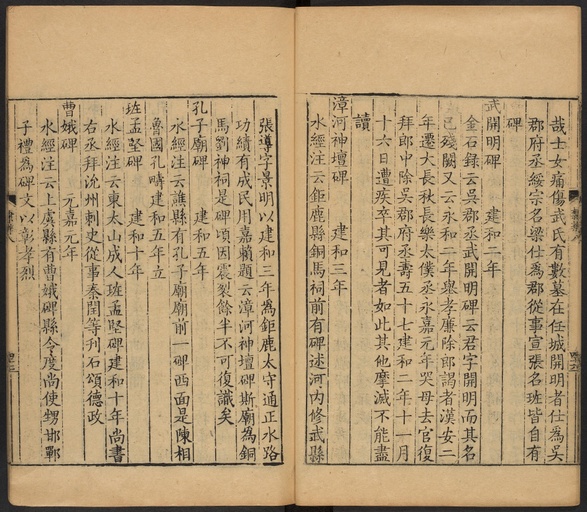 哉士女痛傷武氏有數墓在任城開明者仕為吳
郡府丞綏宗名梁仕為郡從事宣張名班皆自有
碑
武開明碑　建和二年
金石錄云吳郡丞武開明碑云君字開明而其名
已殘闕又云永和二年舉孝廉除郎謁者漢安二
年遷大長秋長樂太僕丞永嘉元年哭母去官復
拜郎中除吳郡府丞壽五十七建和二年十一月
十六日遭疾卒其可見者如此其他摩滅不能盡
讀
漳河神壇碑　建和三年
水經注云鉅鹿縣銅馬祠前有碑述河内修武縣
張導字景明以建和三年為鉅鹿太守通正水路
功績有成民用嘉賴題云漳河神壇碑斯廟為銅
馬劉神祠是碑頃因震裂餘半不可復識矣
孔子廟碑　建和五年
水經注云譙縣有孔子廟廟前一碑西面是陳相
魯國孔疇建和五年立
班孟堅碑　建和十年
水經注云東太山成人班孟堅碑建和十年尚書
右丞拜沇州刺史從事秦閏等刋石頌德政
曹娥碑　元嘉元年
水經注云上虞縣有曹娥碑縣令度尚使甥邯鄲
子禮為碑文以彰孝烈